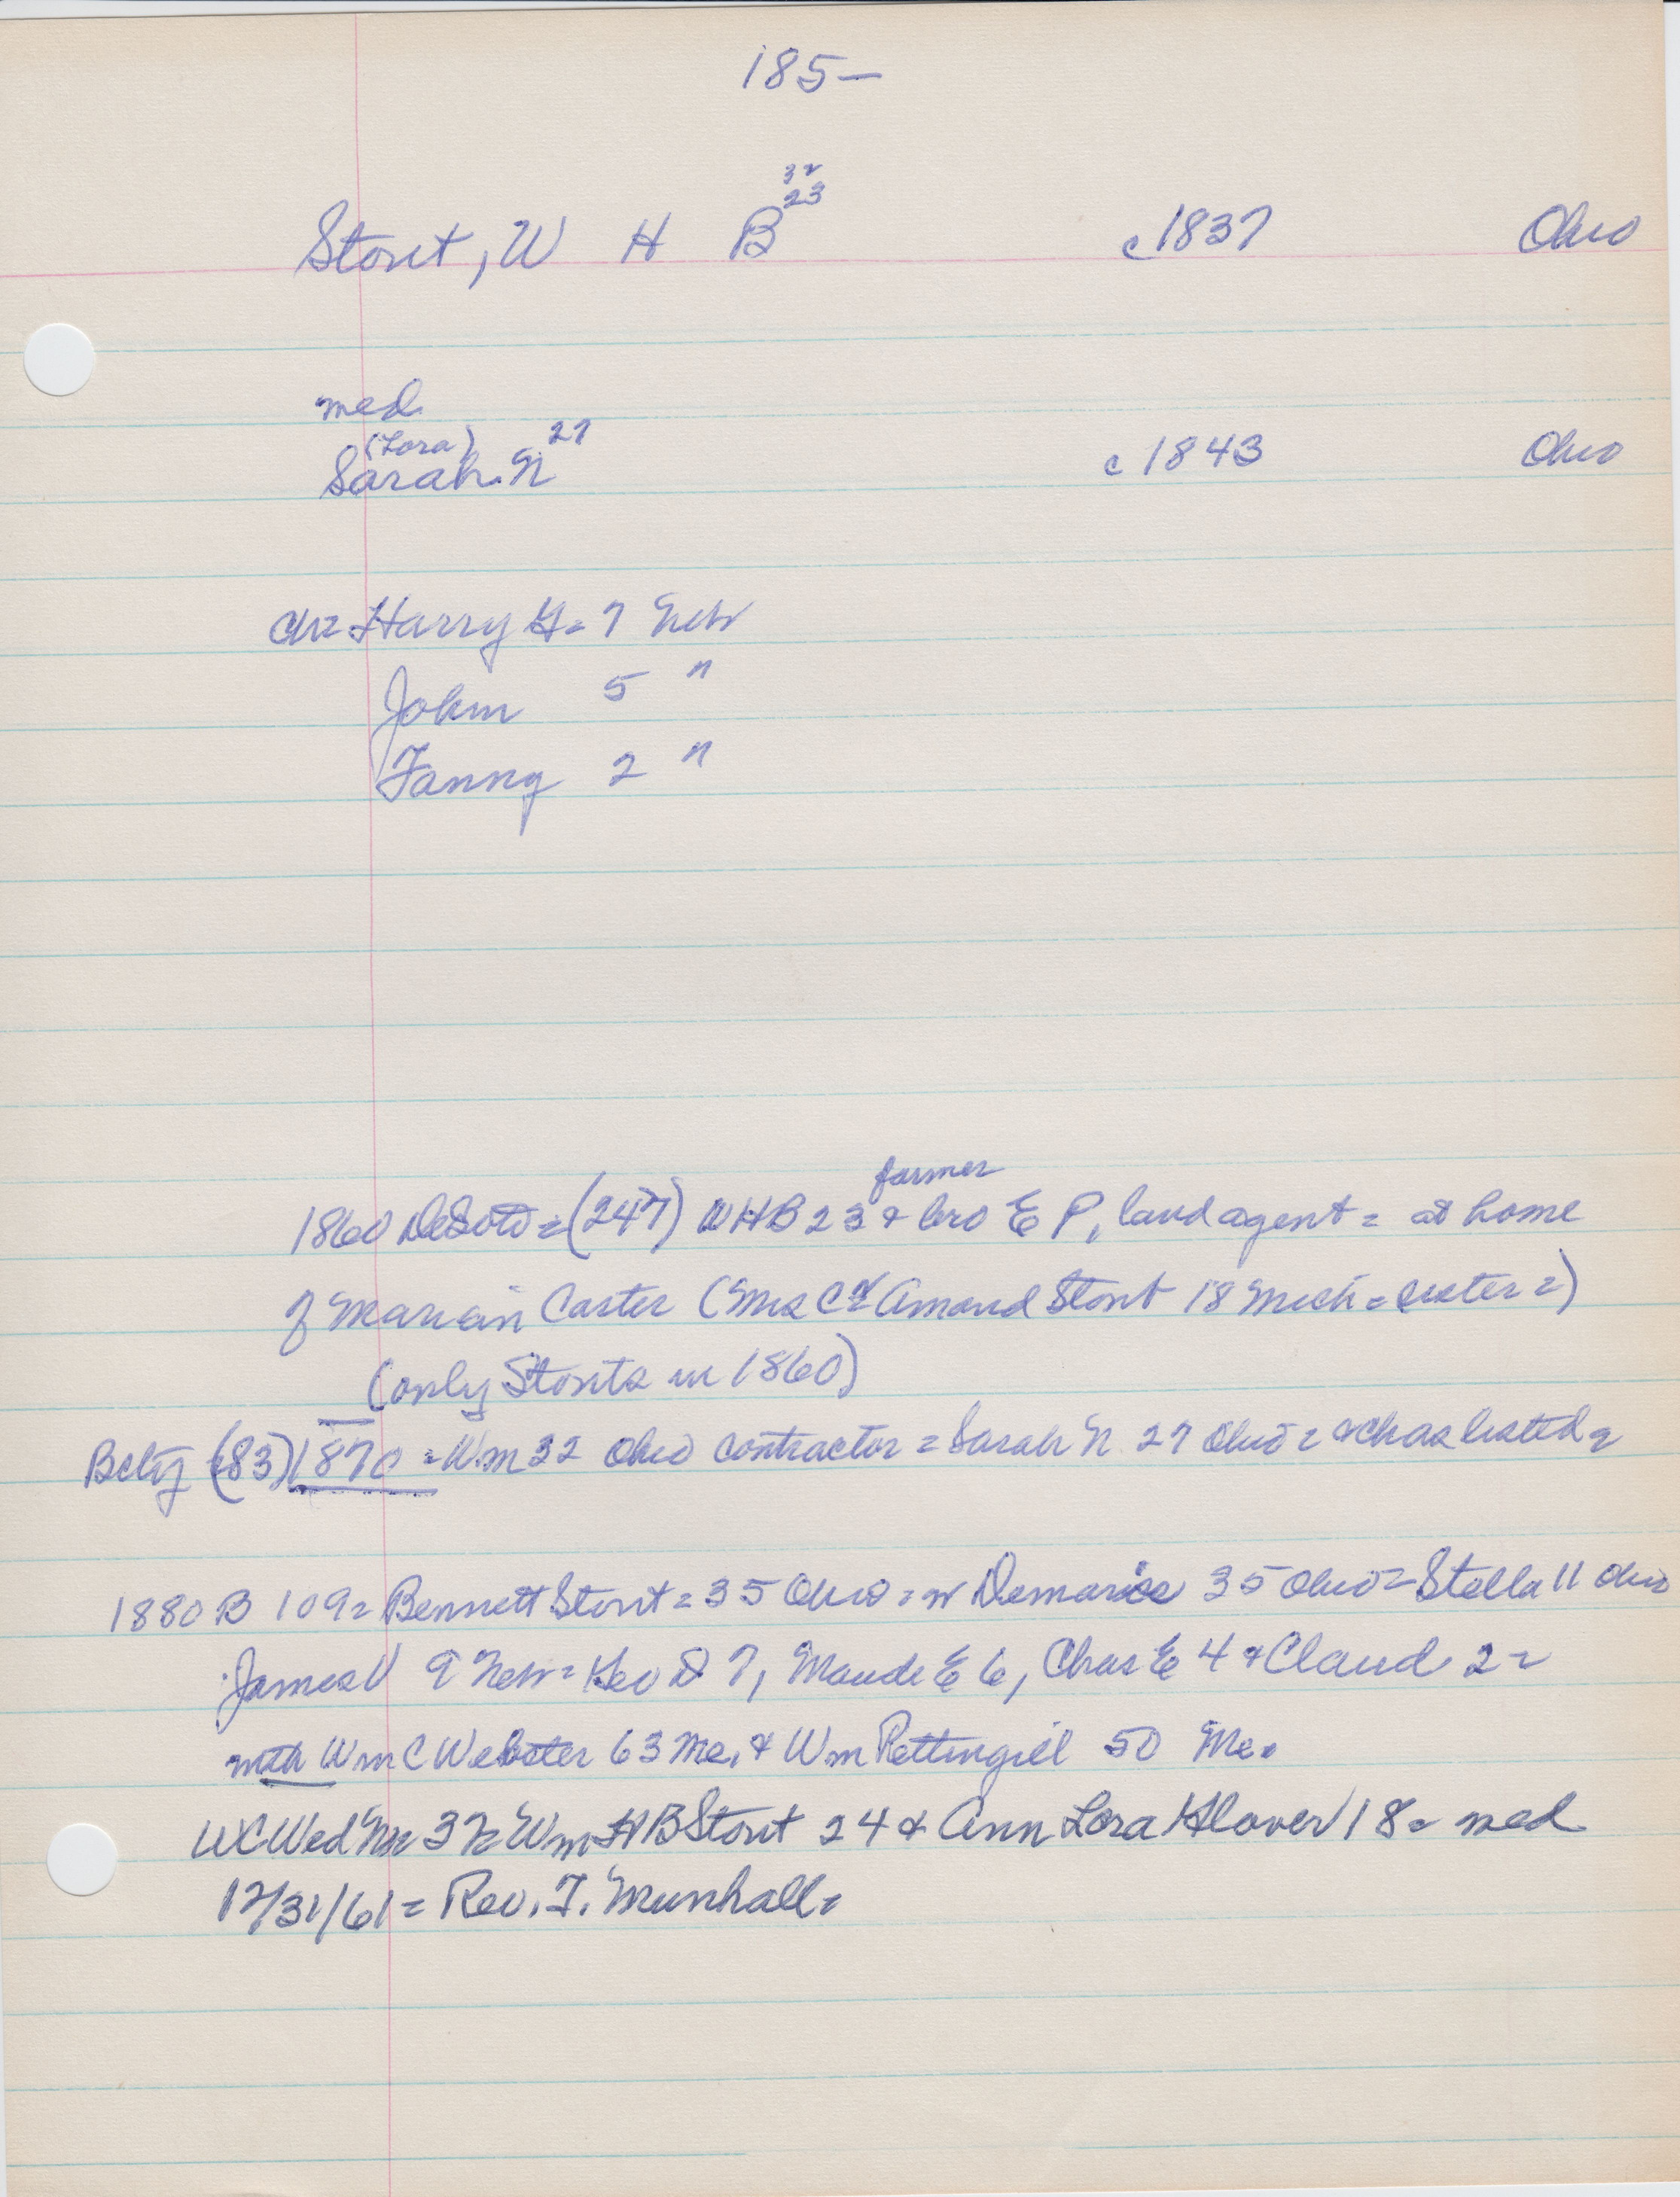 185-
32
23
Stout, W H B c1837 Ohio
med.
(Lora) 27
Sarah. N c 1843 Ohio
ch= Harry H = 7 Neb
John 5 "
Fanny 2 "
farmer
1860 DeSoto = (247) WHB 23 & bro E P, land agent = at home
of Marian Carter (Mrs C & Amand Stout 18 Mich = sister =)
(only Stouts in 1860)
Bcty (83) 1870 = Wm 32 Ohio contractor = Sarah N 27 Ohio = & chas listed =
1880 B 109 = Bennett Stout = 35 Ohio = w Demarice 35 Ohio = Stella 11 Ohio
James V 9 Neb = Geo D 7, Maude E 6, Chas E 4 & Claud 2 =
with Wm C Webster 63 Me. & Wm Pettingill 50 Me.
WC Wed 32 Wm H B Stout 24 & Ann Lora Hlover 18 = med
12/31/61 = Rev. T. Munhall =